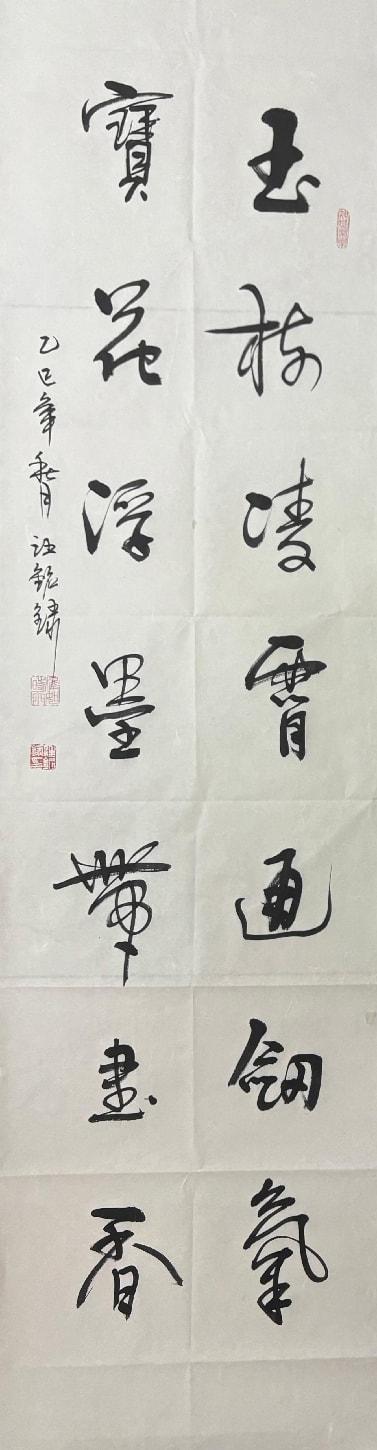 玉樹凌霄通劍氣
寶花浮墨帶書香
乙巳年 秋月 銘鏽